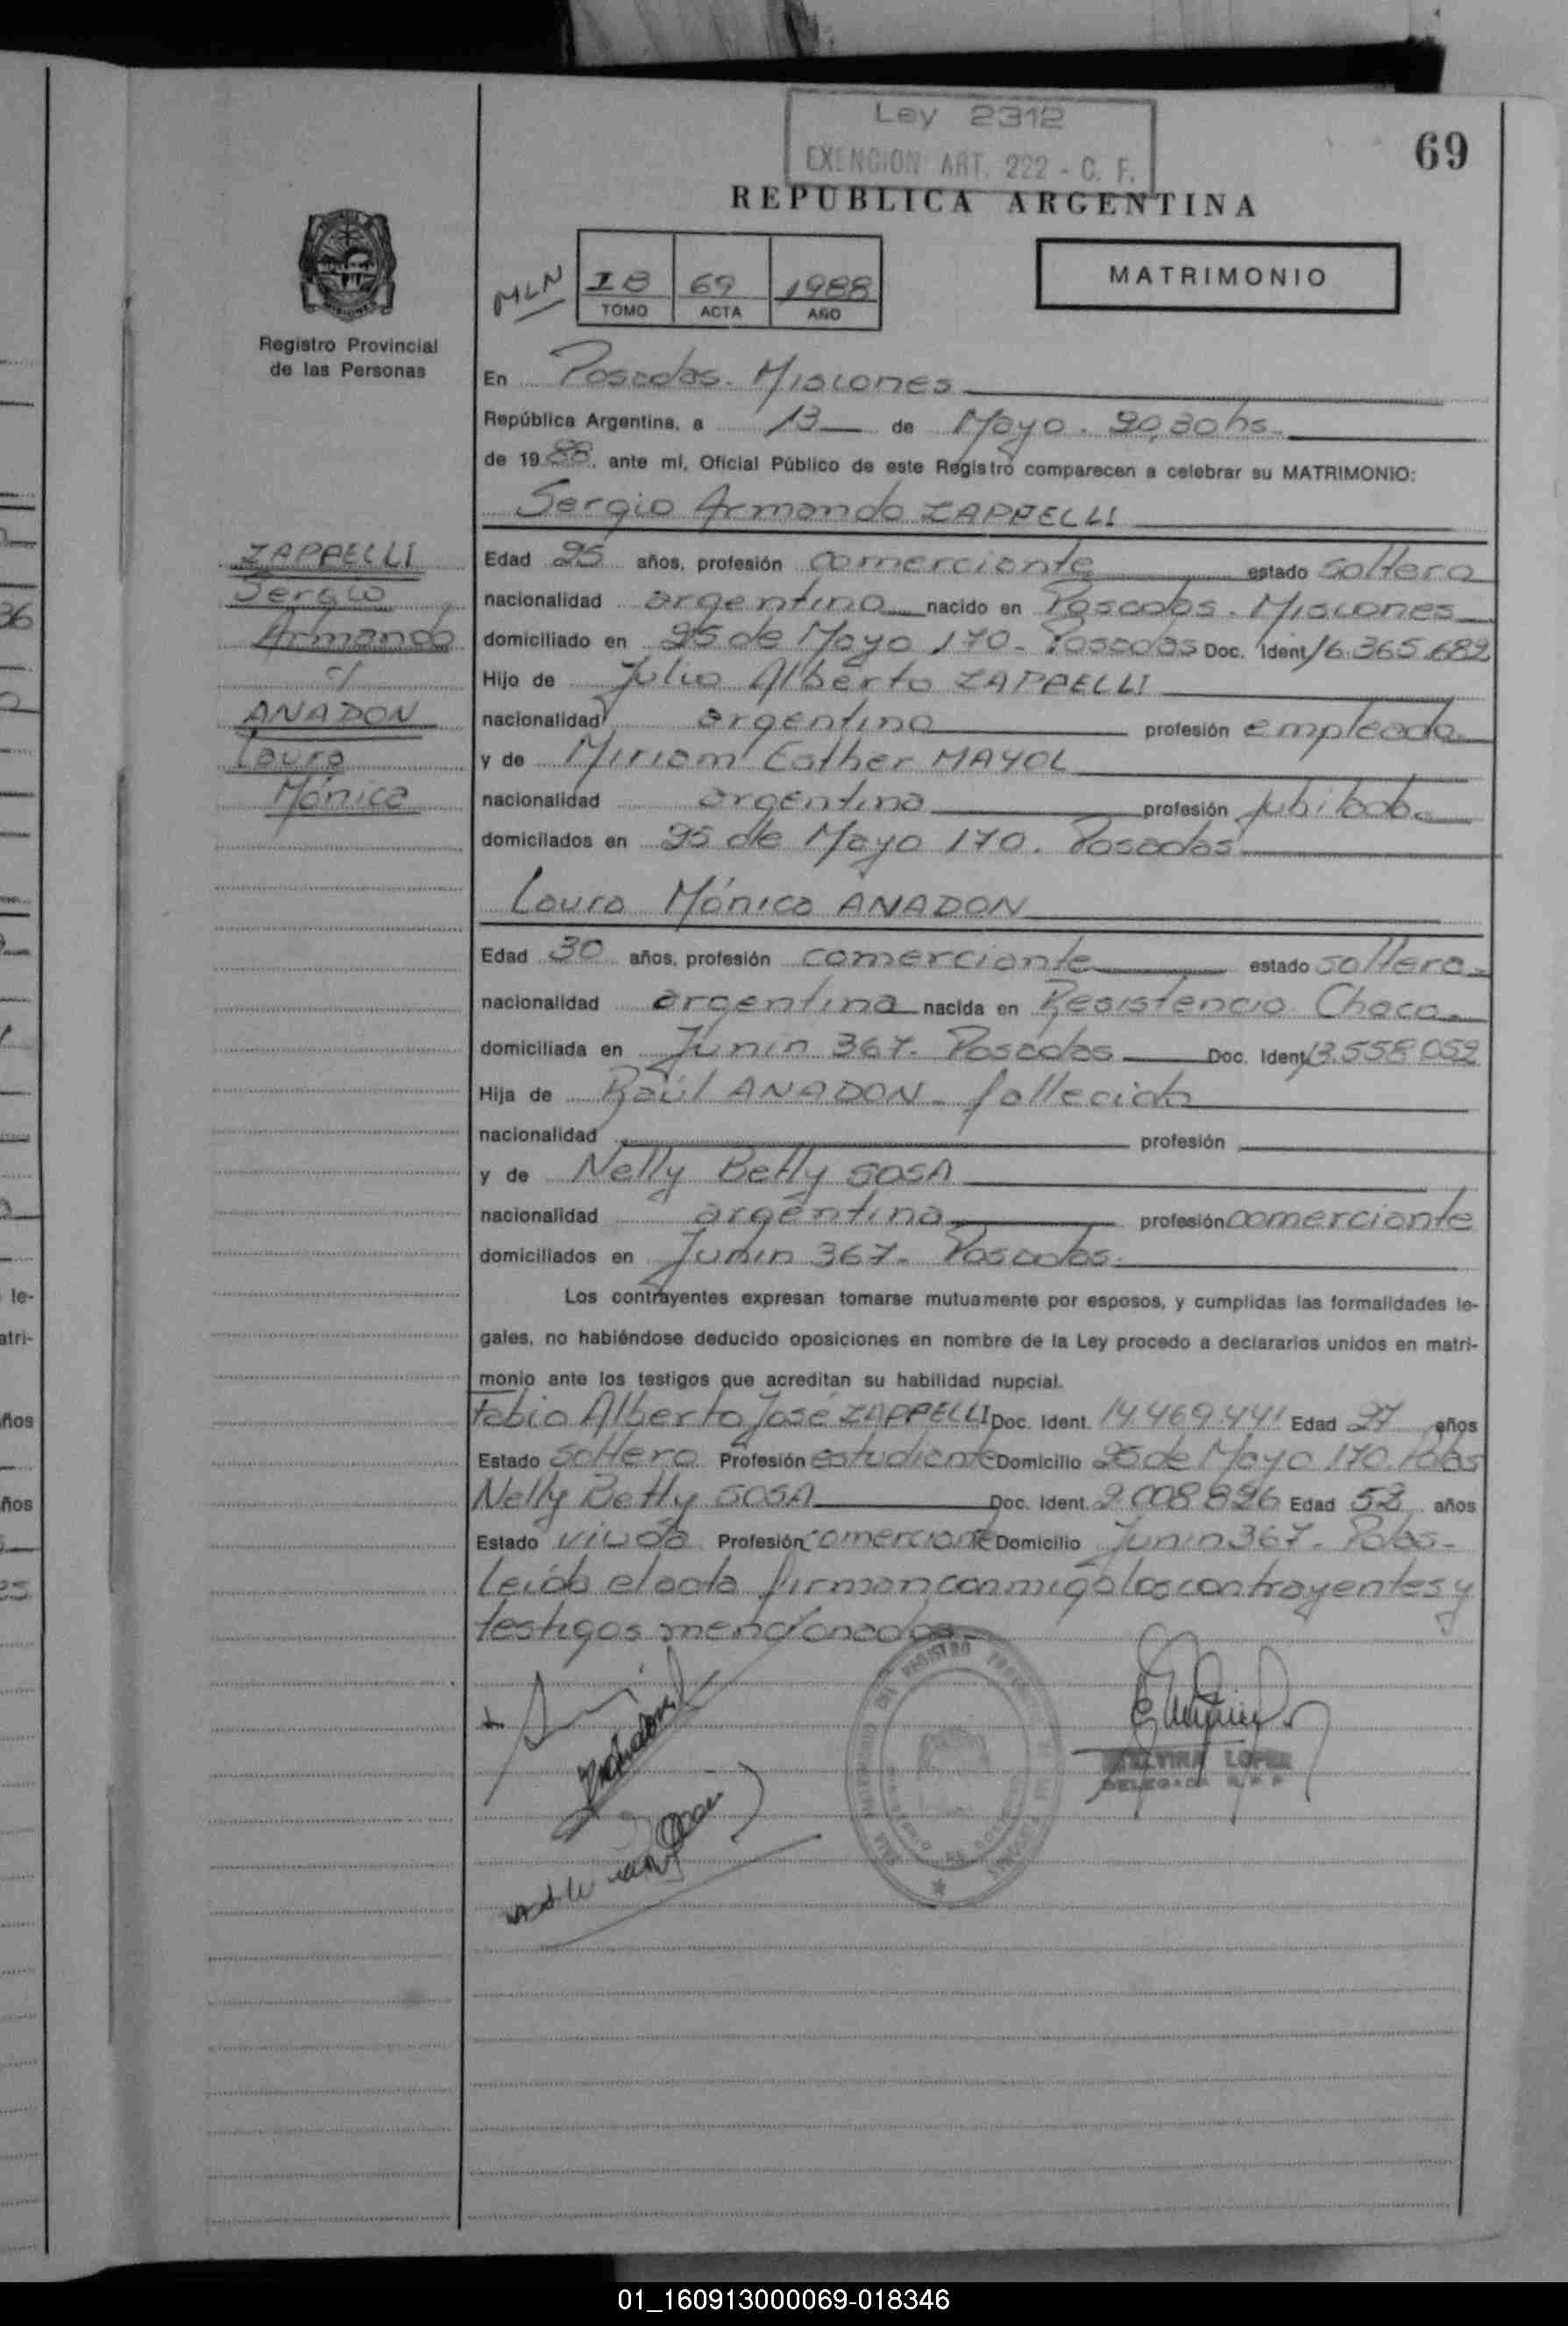 Ley 2312
EXENCION ART. 222 - C. F.
69
REPUBLICA ARGENTINA
MATRIMONIO
MLN
I B 69 1988
TOMO ACTA AÑO
Registro Provincial
de las Personas
En Posadas - Misiones
República Argentina, a 13 de Mayo - 20,30 hs.
de 1988, ante mí, Oficial Público de este Registro comparecen a celebrar su MATRIMONIO:
Sergio Armando ZAPPELLI
ZAPPELLI
Sergio
Armando
c/
ANADON
Laura
Mónica
Edad 25 años, profesión comerciante estado soltero
nacionalidad argentino nacido en Posadas - Misiones
domiciliado en 25 de Mayo 170 - Posadas Doc. Ident 16.365.682
Hijo de Julio Alberto ZAPPELLI
nacionalidad argentino profesión empleado
y de Miriam Esther MAYOL
nacionalidad argentina profesión jubilada
domicilados en 25 de Mayo 170. Posadas
Laura Mónica ANADON
Edad 30 años, profesión comerciante estado soltera
nacionalidad argentina nacida en Resistencia. Chaco
domiciliada en Junin 367 - Posadas Doc. Ident 13.558.052
Hija de Raúl ANADON - fallecido
nacionalidad profesión
y de Nelly Betty SOSA
nacionalidad argentina profesión comerciante
domiciliados en Junin 367 - Posadas
Los contrayentes expresan tomarse mutuamente por esposos, y cumplidas las formalidades le-
gales, no habiéndose deducido oposiciones en nombre de la Ley procedo a declararlos unidos en matri-
monio ante los testigos que acreditan su habilidad nupcial.
Fabio Alberto José ZAPPELLI Doc. Ident. 14.469.441 Edad 27 años
Estado soltero Profesión estudiante Domicilio 25 de Mayo 170. Pdas
Nelly Betty SOSA Doc. Ident. 2.008.826 Edad 52 años
Estado viuda Profesión comerciante Domicilio Junin 367 - Pdas -
Leída el acta firman conmigo los contrayentes y
testigos mencionados -
LOPEZ
DELEGADA R.P.P
01_160913000069-018346